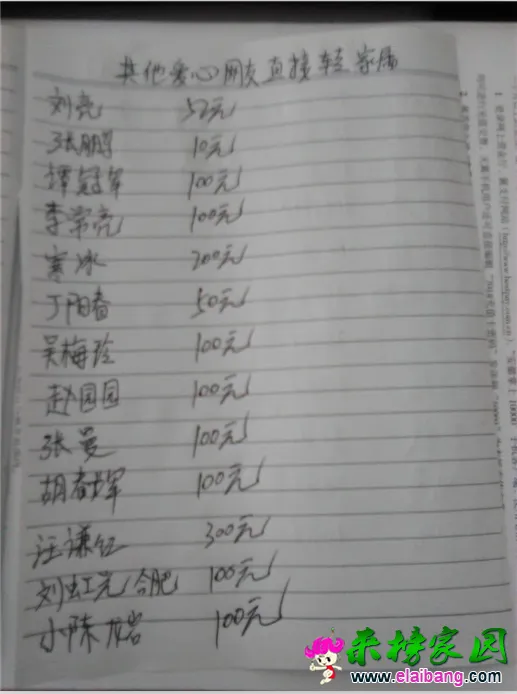 其他爱心网友直接转家属
刘亮 52元
张鹏 10元
谭冠军 100元
李常亮 100元
寒冰 200元
丁阳春 50元
吴梅玲 100元
赵园园 100元
张曼 100元
胡春辉 100元
汪谦红 300元
刘虹光 合肥 100元
小陈 龙岩 100元
来榜家园
www.elaibang.com